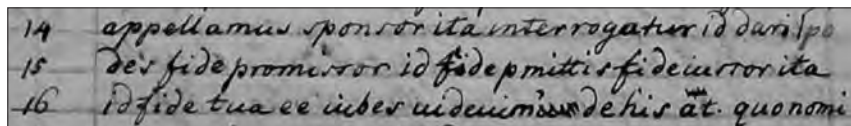 14 appellamus sponsor ita interrogatur id dari spo
15 des fidepromissor id fide pmittis fideiussor ita
16 id fide tua ee iubes uideuimus de his at. quo nomi